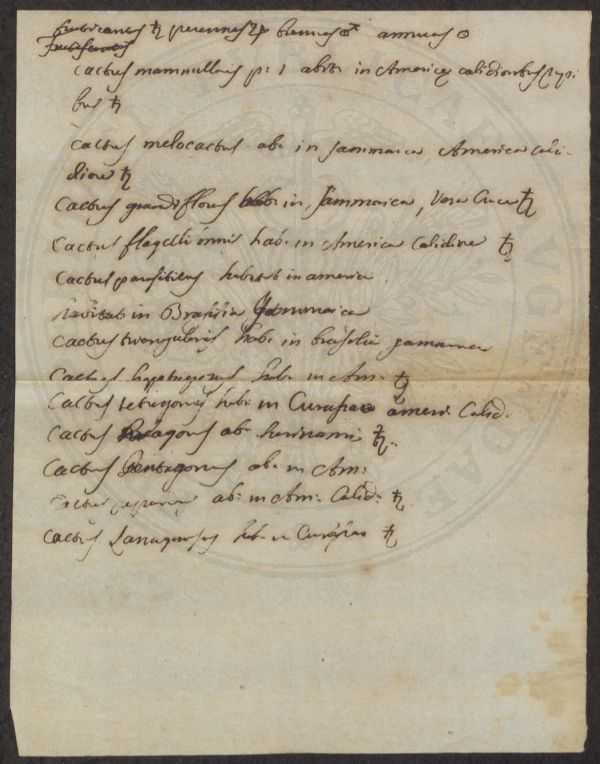 fruticantes ♄ perennes ♃ biennes ♂ annuas ☉
Cactus mammillaris p: 1 abit: in Americæ calidioribus rupi-
bus ♄
Cactus melocactus ab: in Jammaica, America cali-
diore ♄
Cactus grandiflorus hab: in Jammaica, Vera Cruce ♄
Cactus flagelliformis hab: in America Calidiore ♄
Cactus parasiticus habitat in america
havitat in Brasilia Jammaica
Cactus triangularis hab: in brasilia jamaica
Cactus heptagonus hab: in Am: ♄
Cactus tetragonus hab: in Curassao ameri Calid.
Cactus ab: surinami ♄
Cactus Pentagonus ab: in Am:
Cactus ab: in Am: Calid: ♄
Cactus Lanuginosus hab: in Curassao ♄